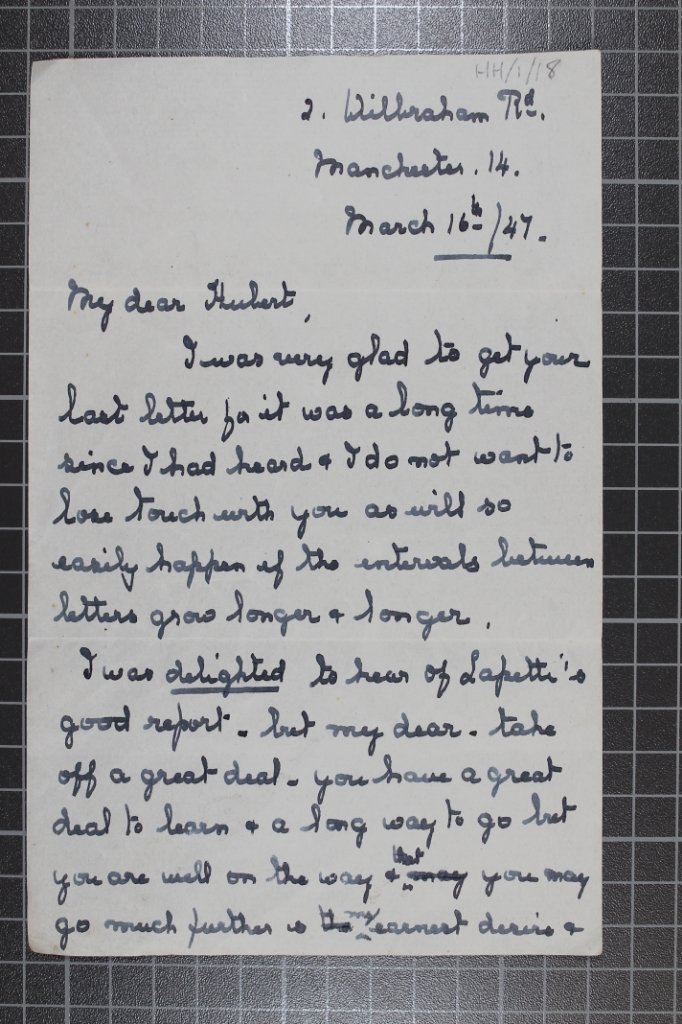 HH/1/18
2. Wilbraham Rd.
Manchester. 14.
March 16th/47.
My dear Hubert,
I was very glad to get your
last letter for it was a long time
since I had heard & I do not want to
lose touch with you as will so
easily happen if the intervals between
letters grow longer & longer.
I was delighted to hear of Lapetti's
good report. but my dear. take
off a great deal. you have a great
deal to learn & a long way to go but
you are well on the way & that may you may
go much further is the my earnest desire &